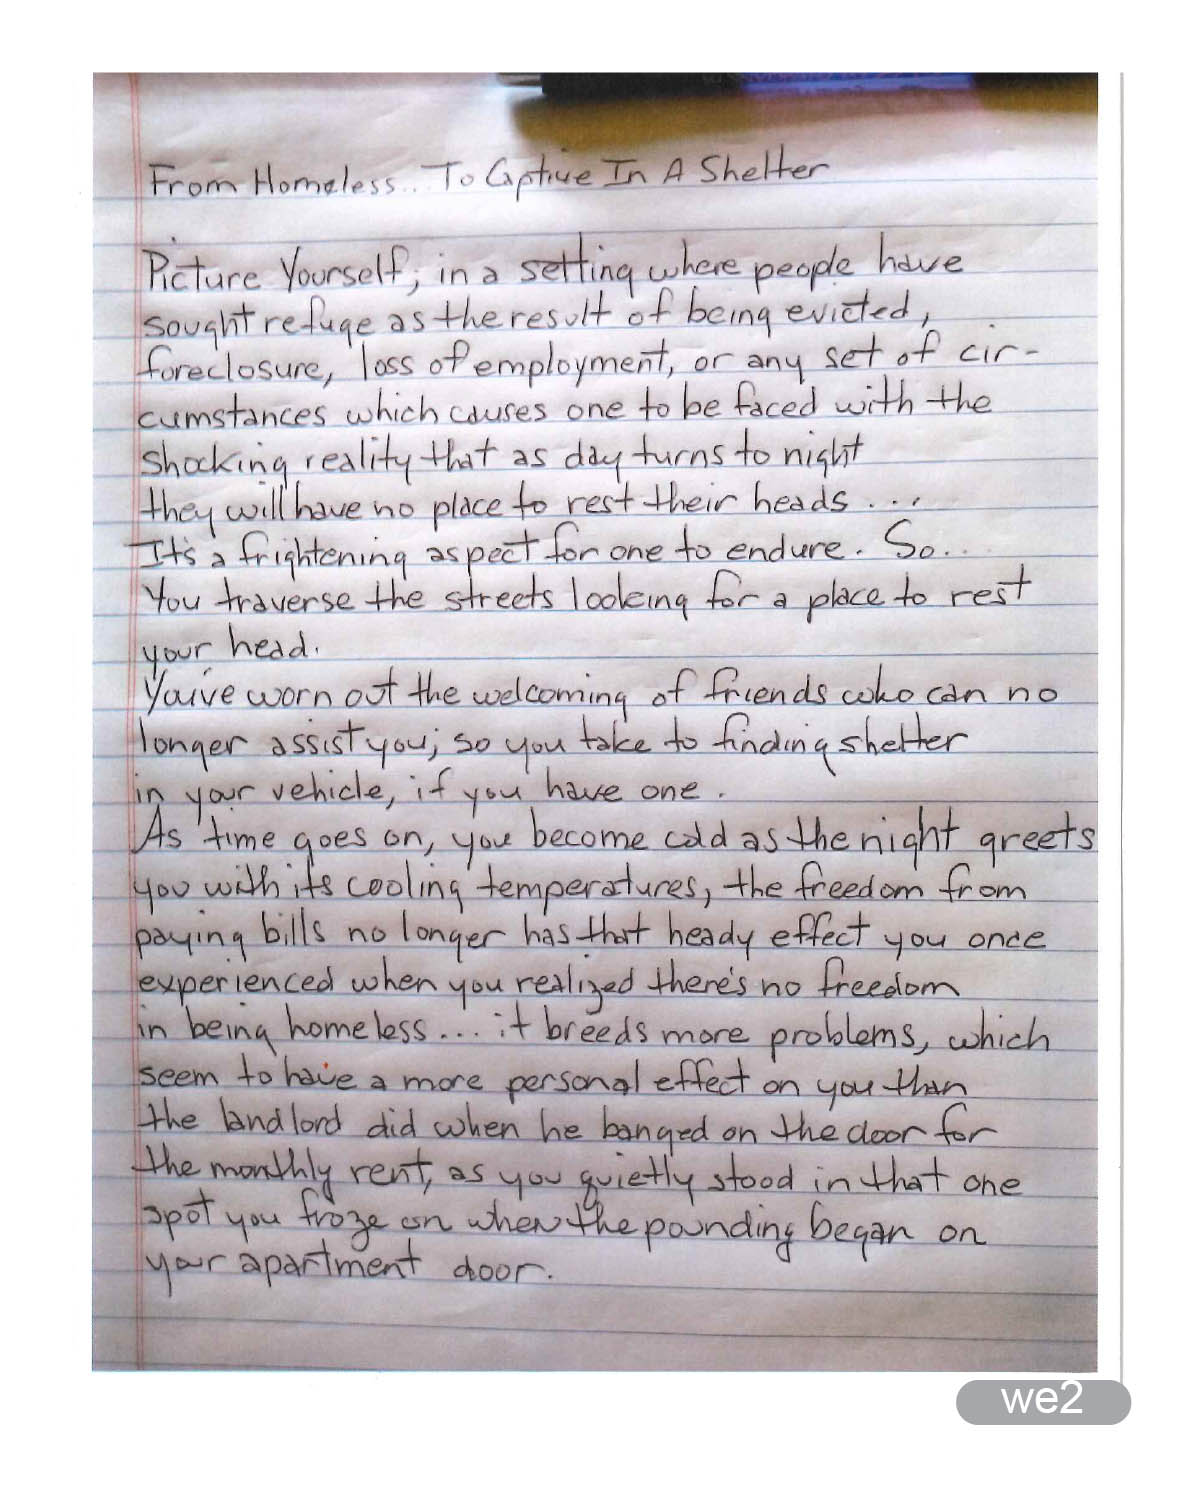 From Homeless.. To Captive In A Shelter
Picture Yourself; in a setting where people have
sought refuge as the result of being evicted,
foreclosure, loss of employment, or any set of cir-
cumstances which causes one to be faced with the
shocking reality that as day turns to night
they will have no place to rest their heads ...
It's a frightening aspect for one to endure. So...
You traverse the streets looking for a place to rest
your head.
You've worn out the welcoming of friends who can no
longer assist you; so you take to finding shelter
in your vehicle, if you have one.
As time goes on, you become cold as the night greets
you with its cooling temperatures, the freedom from
paying bills no longer has that heady effect you once
experienced when you realized there's no freedom
in being homeless... it breeds more problems, which
seem to have a more personal effect on you than
the landlord did when he banged on the door for
the monthly rent, as you quietly stood in that one
spot you froze on when the pounding began on
your apartment door.
we2